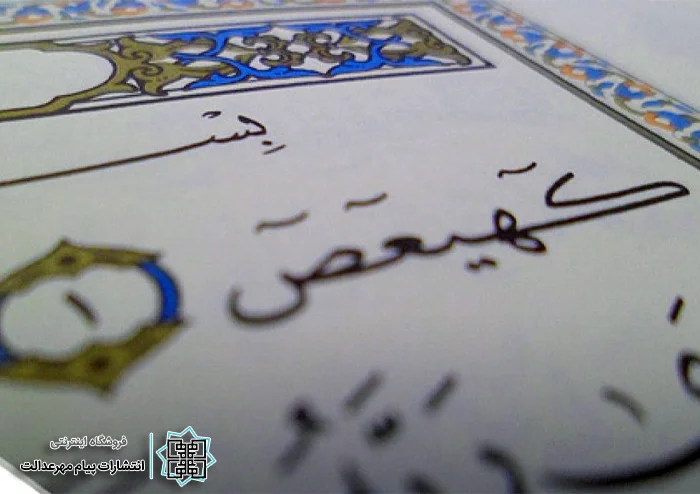 بِسْ
كٓهيعٓصٓ
١
فروشگاه اینترنتی
انتشارات پیام مهرعدالت